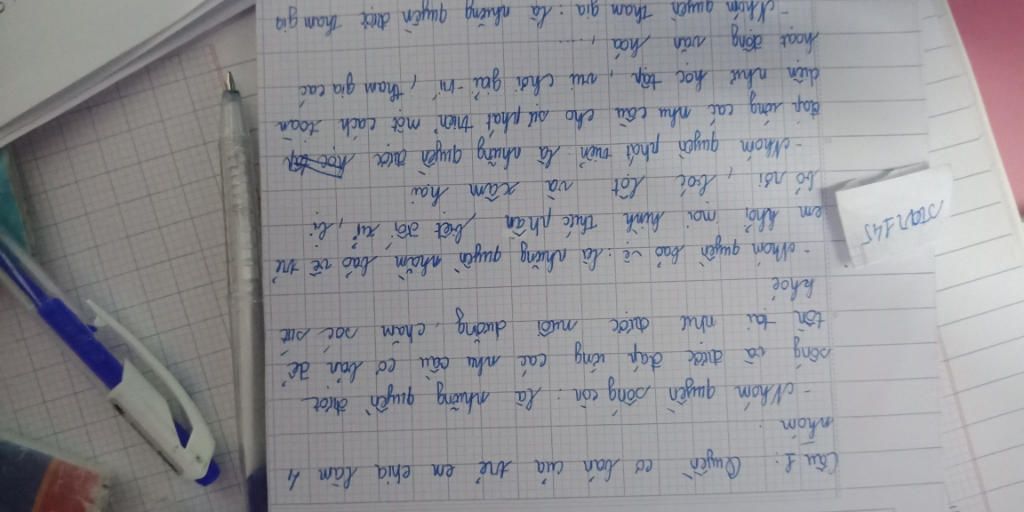 Câu 1: Quyền cơ bản của trẻ em chia làm 4
nhóm:
- Nhóm quyền sống còn: là những quyền được
sống và được đáp ứng các nhu cầu cơ bản để
tồn tại như được nuôi dưỡng, chăm sóc sức
khỏe
- Nhóm quyền bảo vệ: là những quyền nhằm bảo vệ trẻ
em khỏi mọi hình thức phân biệt đối xử, bị
bỏ rơi, bóc lột và xâm hại
- Nhóm quyền phát triển: là những quyền được
đáp ứng các nhu cầu cho sự phát triển một cách toàn
diện như học tập, vui chơi giải trí, tham gia các
hoạt động văn hóa, ....
- Nhóm quyền tham gia: là những quyền được tham gia